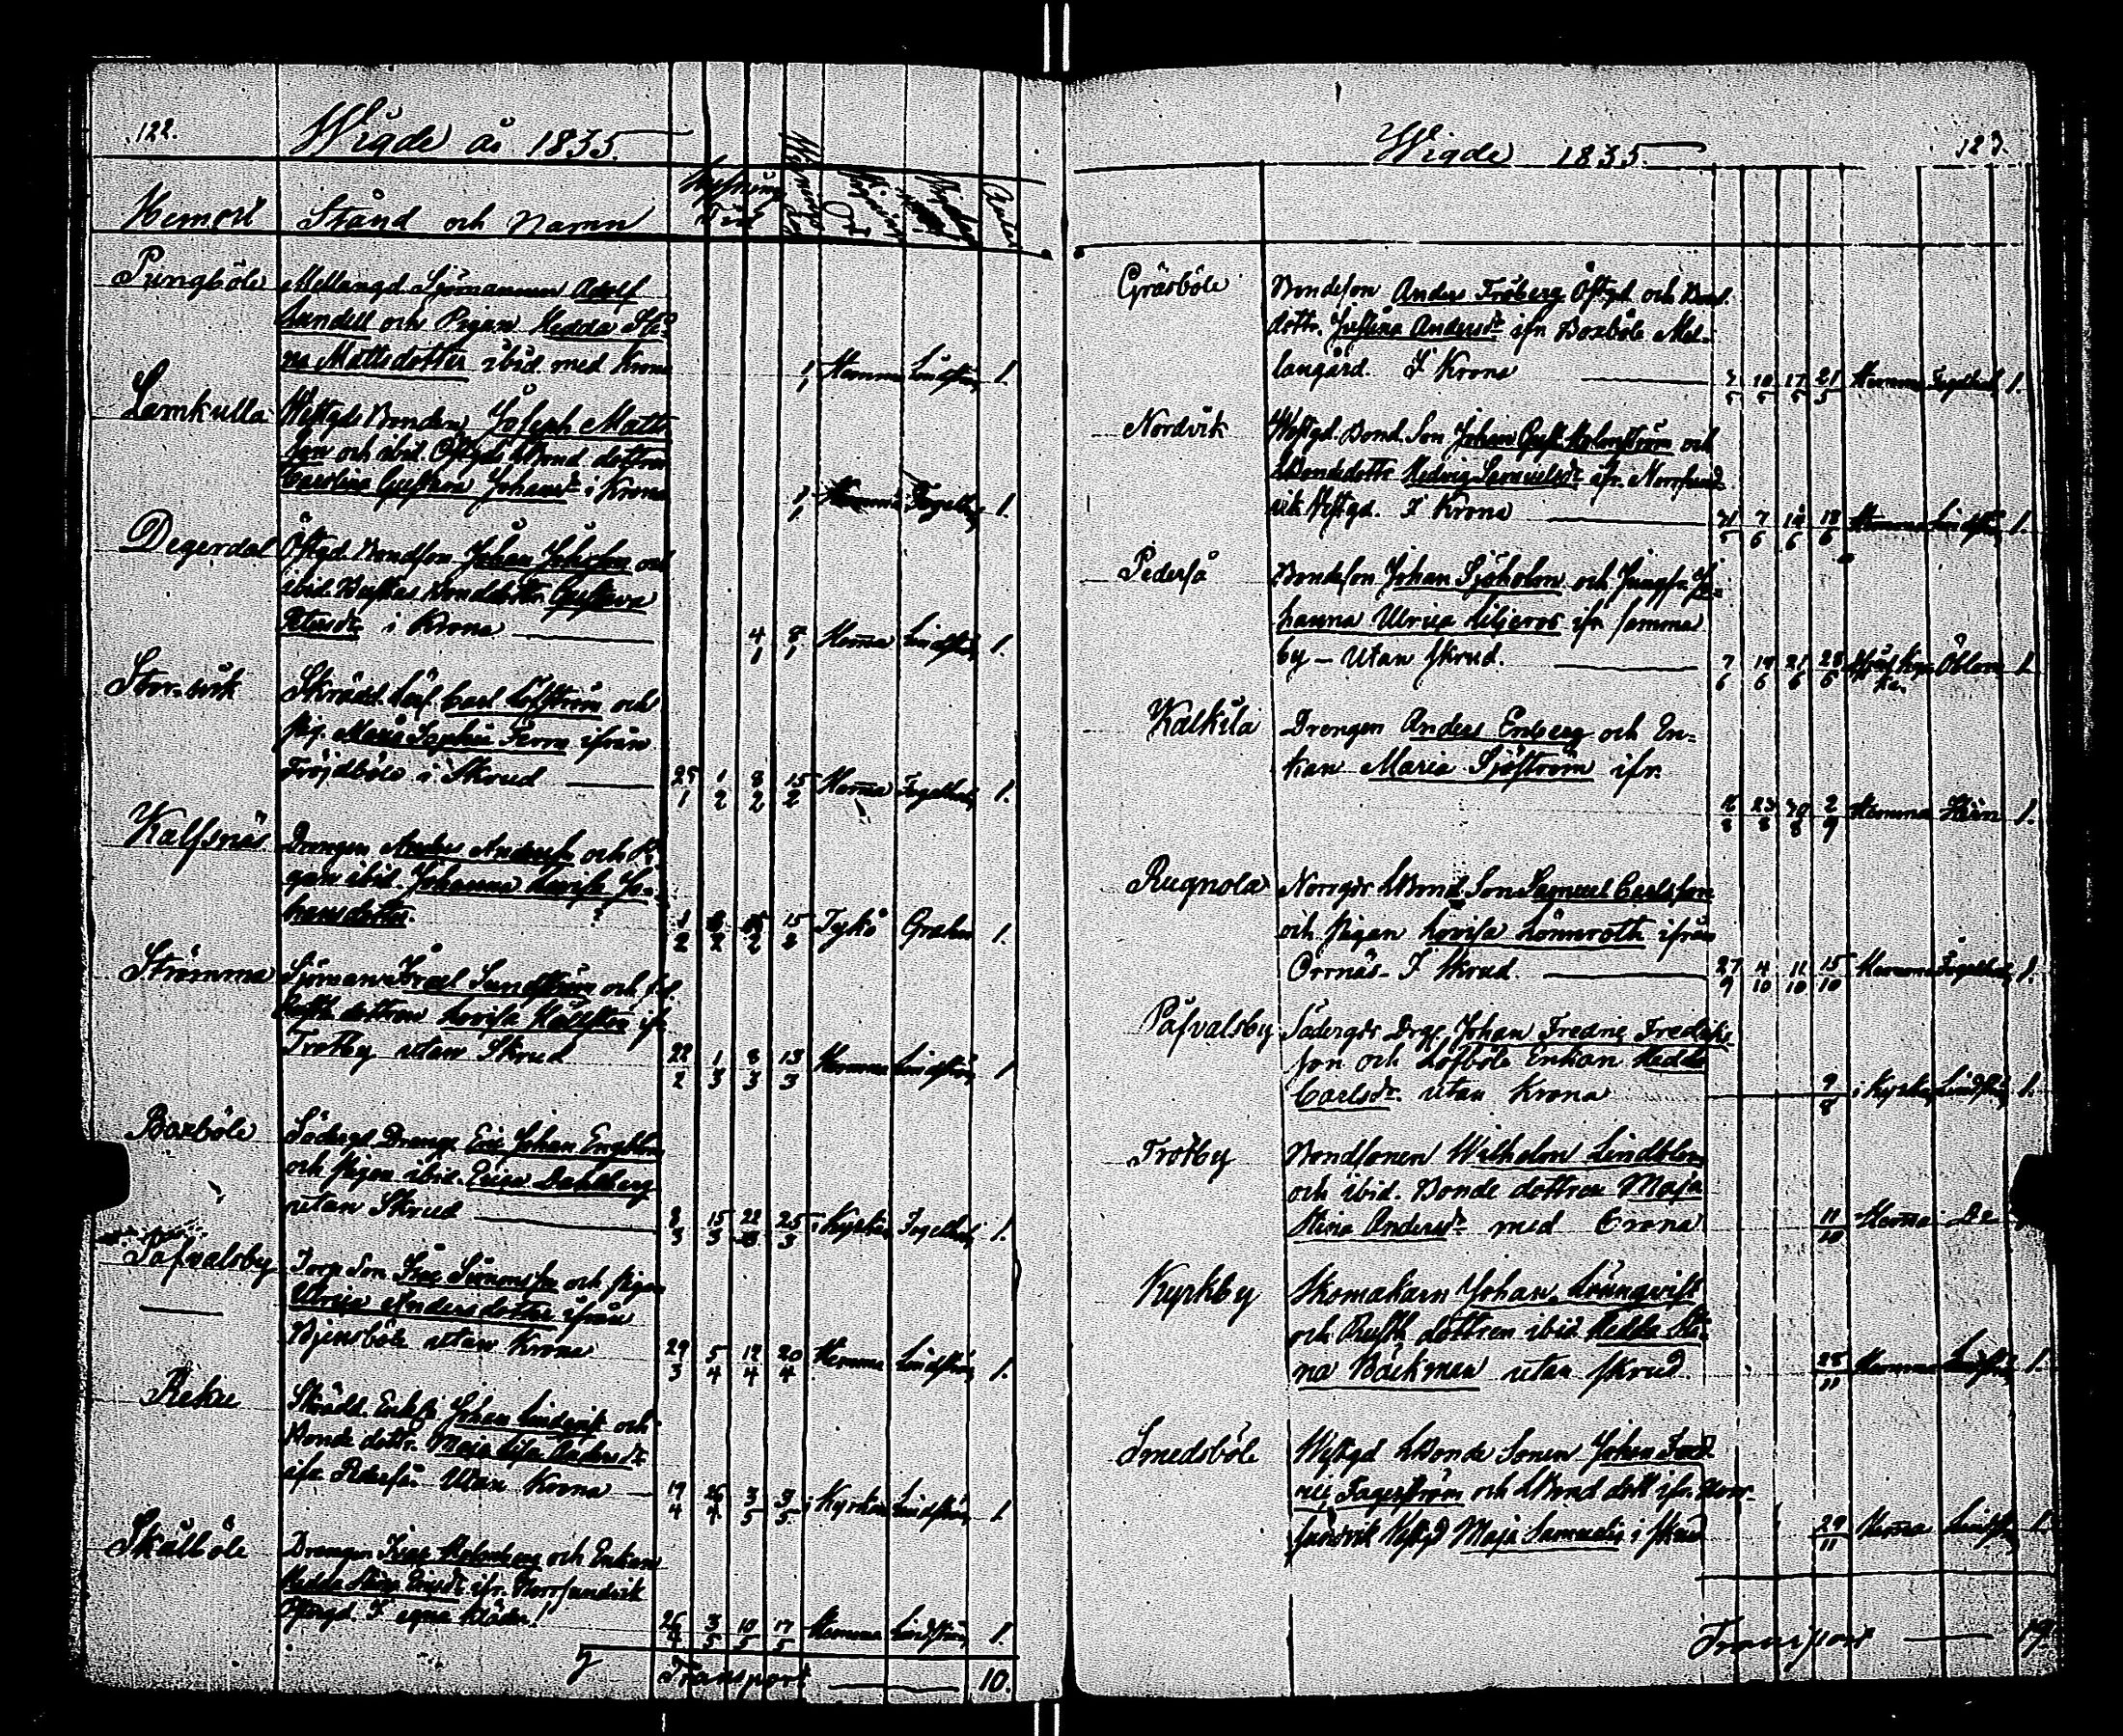 122.
Wigde år 1835.
Hemort Stånd och namn
Lysnings Tid
Pungböle Mellangd. Sjömannen Adolf
Lundell och Pigan Hedda Sti-
na Mattsdotter ibid. med Krona 1/1 Hemma Lindström 1.
Lemkulla Westgds Bonden Joseph Matts
son och ibid. Östgds LBond dottren
Carolina Gustava Johansdr i Krona 1/1 Hemma Fogelholm 1.
Degerdal Östgd. Bondson Johan Johansson och
ibid. Bonddottr. Gustava
Petersdr i Krona 4/1 8/1 Hemma Lindström 1.
Storwik Skrädd. Carl Löfström och
pig. Maria Sophia ifrån
Fröjdböle i Skrud 25/1 1/2 8/2 15/2 Hemma Fogelholm 1.
Kalfsnäs Drengen Anders Andersson och Pi-
gan ibid. Johanna Lovisa Jo-
hansdotter. 1/2 8/2 15/2 15/2 Tykö Grahn 1.
Strömma Sjöman Israel Sundström och
Rusth. dottren Lovisa ifr.
Trotby utan Skrud 22/2 1/3 8/3 13/3 Hemma Lindström 1
Boxböle Södergd. Dreng Eric Johan Engblom
och pigan ibid. Erica Dahlberg
utan Skrud 8/3 15/3 22/3 25/3 i Kyrkan Fogelholm 1.
Påfvalsby Torp Son Isac Simonsson och pigan
Ulrica Andersdotter ifrån
Bjensböle utan Krona 29/3 5/4 12/4 20/4 Hemma Lindström 1.
Reku Skrädd. Enkl. Johan Lindqvist och
Bonde dottr. Maja Lisa Andersdr
ifr. Pederså. Utan Krona 19/4 26/4 3/5 3/5 i Kyrkan Lindström 1
Skälböle Drengen Isac Holmberg och Enkan
Hedda Stina Ericsdr ifr. Norrsundvik
Östergd. I egna kläder! 26/4 3/5 10/5 17/5 Hemma Lindström 1.
Transport 10.
Wigde 1835.
123.
Gräsböle Bondeson Anders Fröberg Östgd. och Bond.
dottr. Justina Andersdr ifrn Boxböle Mel-
langård. I Krona 3/5 10/5 17/5 21/5 Hemma Fogelholm 1.
Nordvik Westgd. Bond. Son Johan Gust. Holmström och
LBondedottr. Hedvig Samuelsdr ifr. Norrsund
vik Westgd. I Krona 31/5 7/6 14/6 18/6 Hemma Lindström 1.
Pederså Bondeson Johan Sjöholm och Jungfr. Jo-
hanna Ulrica Liljeros ifr samma
by – Utan skrud. 7/6 14/6 21/6 28/6 Öhlom 1.
Kalkila Drengen Anders Enberg och En-
kan Maria Sjöström ifr. 16/8 23/8 30/8 2/9 Hemma 1.
Rugnola Norrgds LBond Son Samuel Carlsson
och pigan Lovisa Lönnroth ifrån
Orrnäs – I Skrud. 27/9 4/10 11/10 15/10 Hemma Fogelholm 1.
Påfvalsby Södergds Drgn. Johan Fredric Fredriks
son och Löfböle Enkan Hedda
Carlsdr. utan Krona 9/8 i Kyrkan Lindström 1.
Trotby Bondsonen Wilhelm Lindblom
och ibid. Bonde dottren Maja
Stina Andersdr med Crona 11/10 Hemma De
Kyrkby Skomakarn Johan Lönnqvist
och Rusth. dottren ibid. Hedda Sti-
na Bäckman utan skrud. 28/11 Hemma Lindström 1.
Smedsböle Westgd LBonde Sonen Johan Fred-
ric Fagerström och LBond dott ifr. Norr-
sundvik Westgd Maja Samuelis i skrud 29/11 Hemma Lindström 1.
Transport 19.